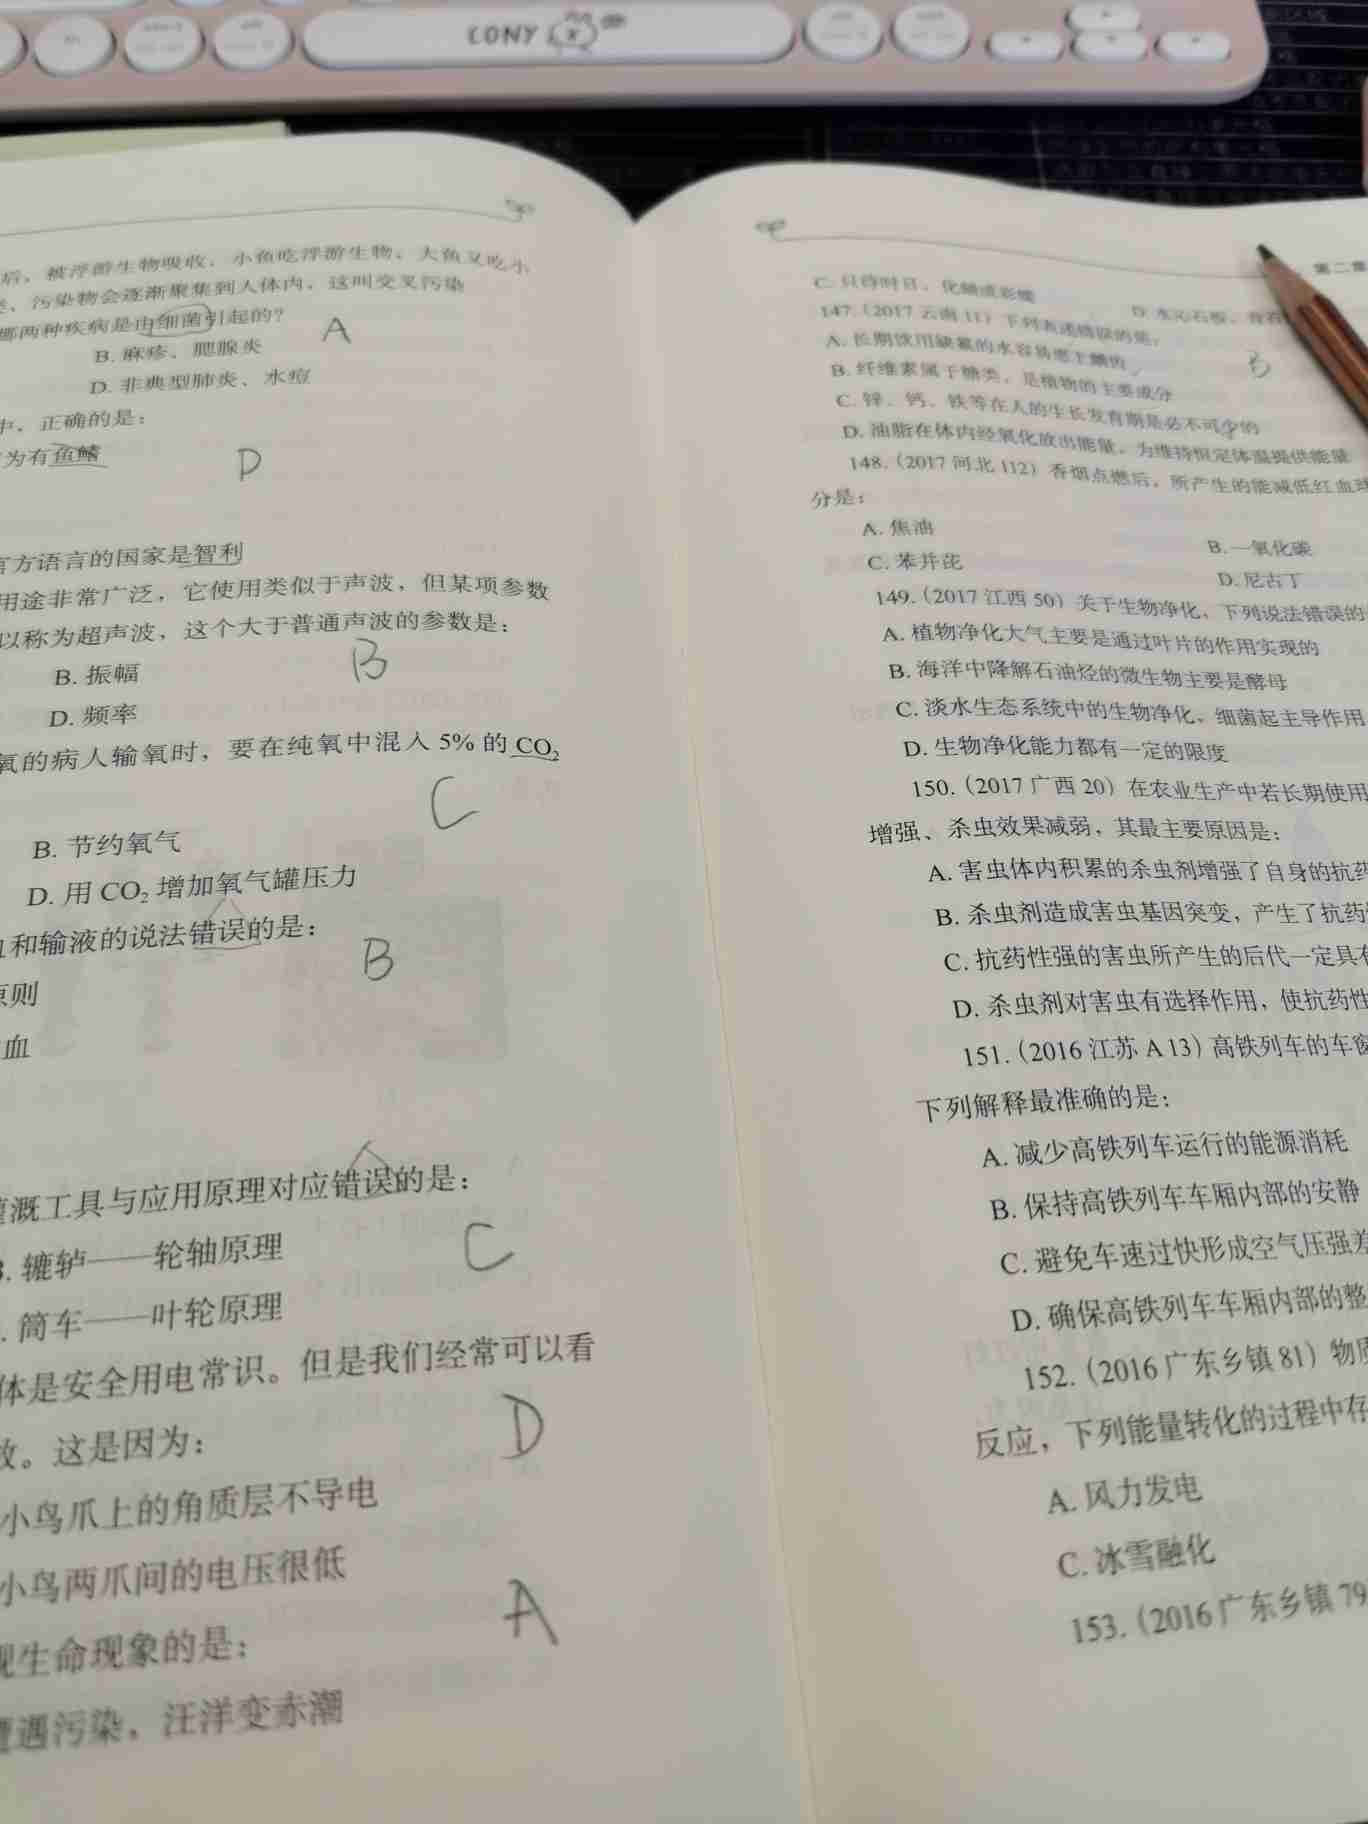 CONY
后，被浮游生物吸收，小鱼吃浮游生物，大鱼又吃小
污染物会逐渐聚集到人体内，这叫交叉污染
哪两种疾病是由细菌引起的？
A
B. 麻疹、腮腺炎
D. 非典型肺炎、水痘
中，正确的是：
为有鱼鳍
D
官方语言的国家是智利
用途非常广泛，它使用类似于声波，但某项参数
以称为超声波，这个大于普通声波的参数是：
B. 振幅
B
D. 频率
氧的病人输氧时，要在纯氧中混入 5% 的 CO₂
C
B. 节约氧气
D. 用 CO₂ 增加氧气罐压力
和输液的说法错误的是：
B
原则
血
灌溉工具与应用原理对应错误的是：
. 辘轳——轮轴原理
C
. 筒车——叶轮原理
体是安全用电常识。但是我们经常可以看
。这是因为：
D
小鸟爪上的角质层不导电
小鸟两爪间的电压很低
现生命现象的是：
A
遭遇污染，汪洋变赤潮
第二章
C. 只待时日，化蛹成彩蝶
D. 水沁石板，
147.（2017 云南 11）下列表述错误的是：
A. 长期饮用缺氟的水容易患上龋齿
B
B. 纤维素属于糖类，是植物的主要成分
C. 锌、钙、铁等在人的生长发育期是必不可少的
D. 油脂在体内经氧化放出能量，为维持恒定体温提供能量
148.（2017 河北 112）香烟点燃后，所产生的能减低红血球
分是：
A. 焦油
B. 一氧化碳
C. 苯并芘
D. 尼古丁
149.（2017 江西 50）关于生物净化，下列说法错误的
A. 植物净化大气主要是通过叶片的作用实现的
B. 海洋中降解石油烃的微生物主要是酵母
C. 淡水生态系统中的生物净化，细菌起主导作用
D. 生物净化能力都有一定的限度
150.（2017 广西 20）在农业生产中若长期使用
增强、杀虫效果减弱，其最主要原因是：
A. 害虫体内积累的杀虫剂增强了自身的抗药
B. 杀虫剂造成害虫基因突变，产生了抗药
C. 抗药性强的害虫所产生的后代一定具有
D. 杀虫剂对害虫有选择作用，使抗药性
151.（2016 江苏 A 13）高铁列车的车窗
下列解释最准确的是：
A. 减少高铁列车运行的能源消耗
B. 保持高铁列车车厢内部的安静
C. 避免车速过快形成空气压强差
D. 确保高铁列车车厢内部的整
152.（2016 广东乡镇 81）物质
反应，下列能量转化的过程中存
A. 风力发电
C. 冰雪融化
153.（2016 广东乡镇 79